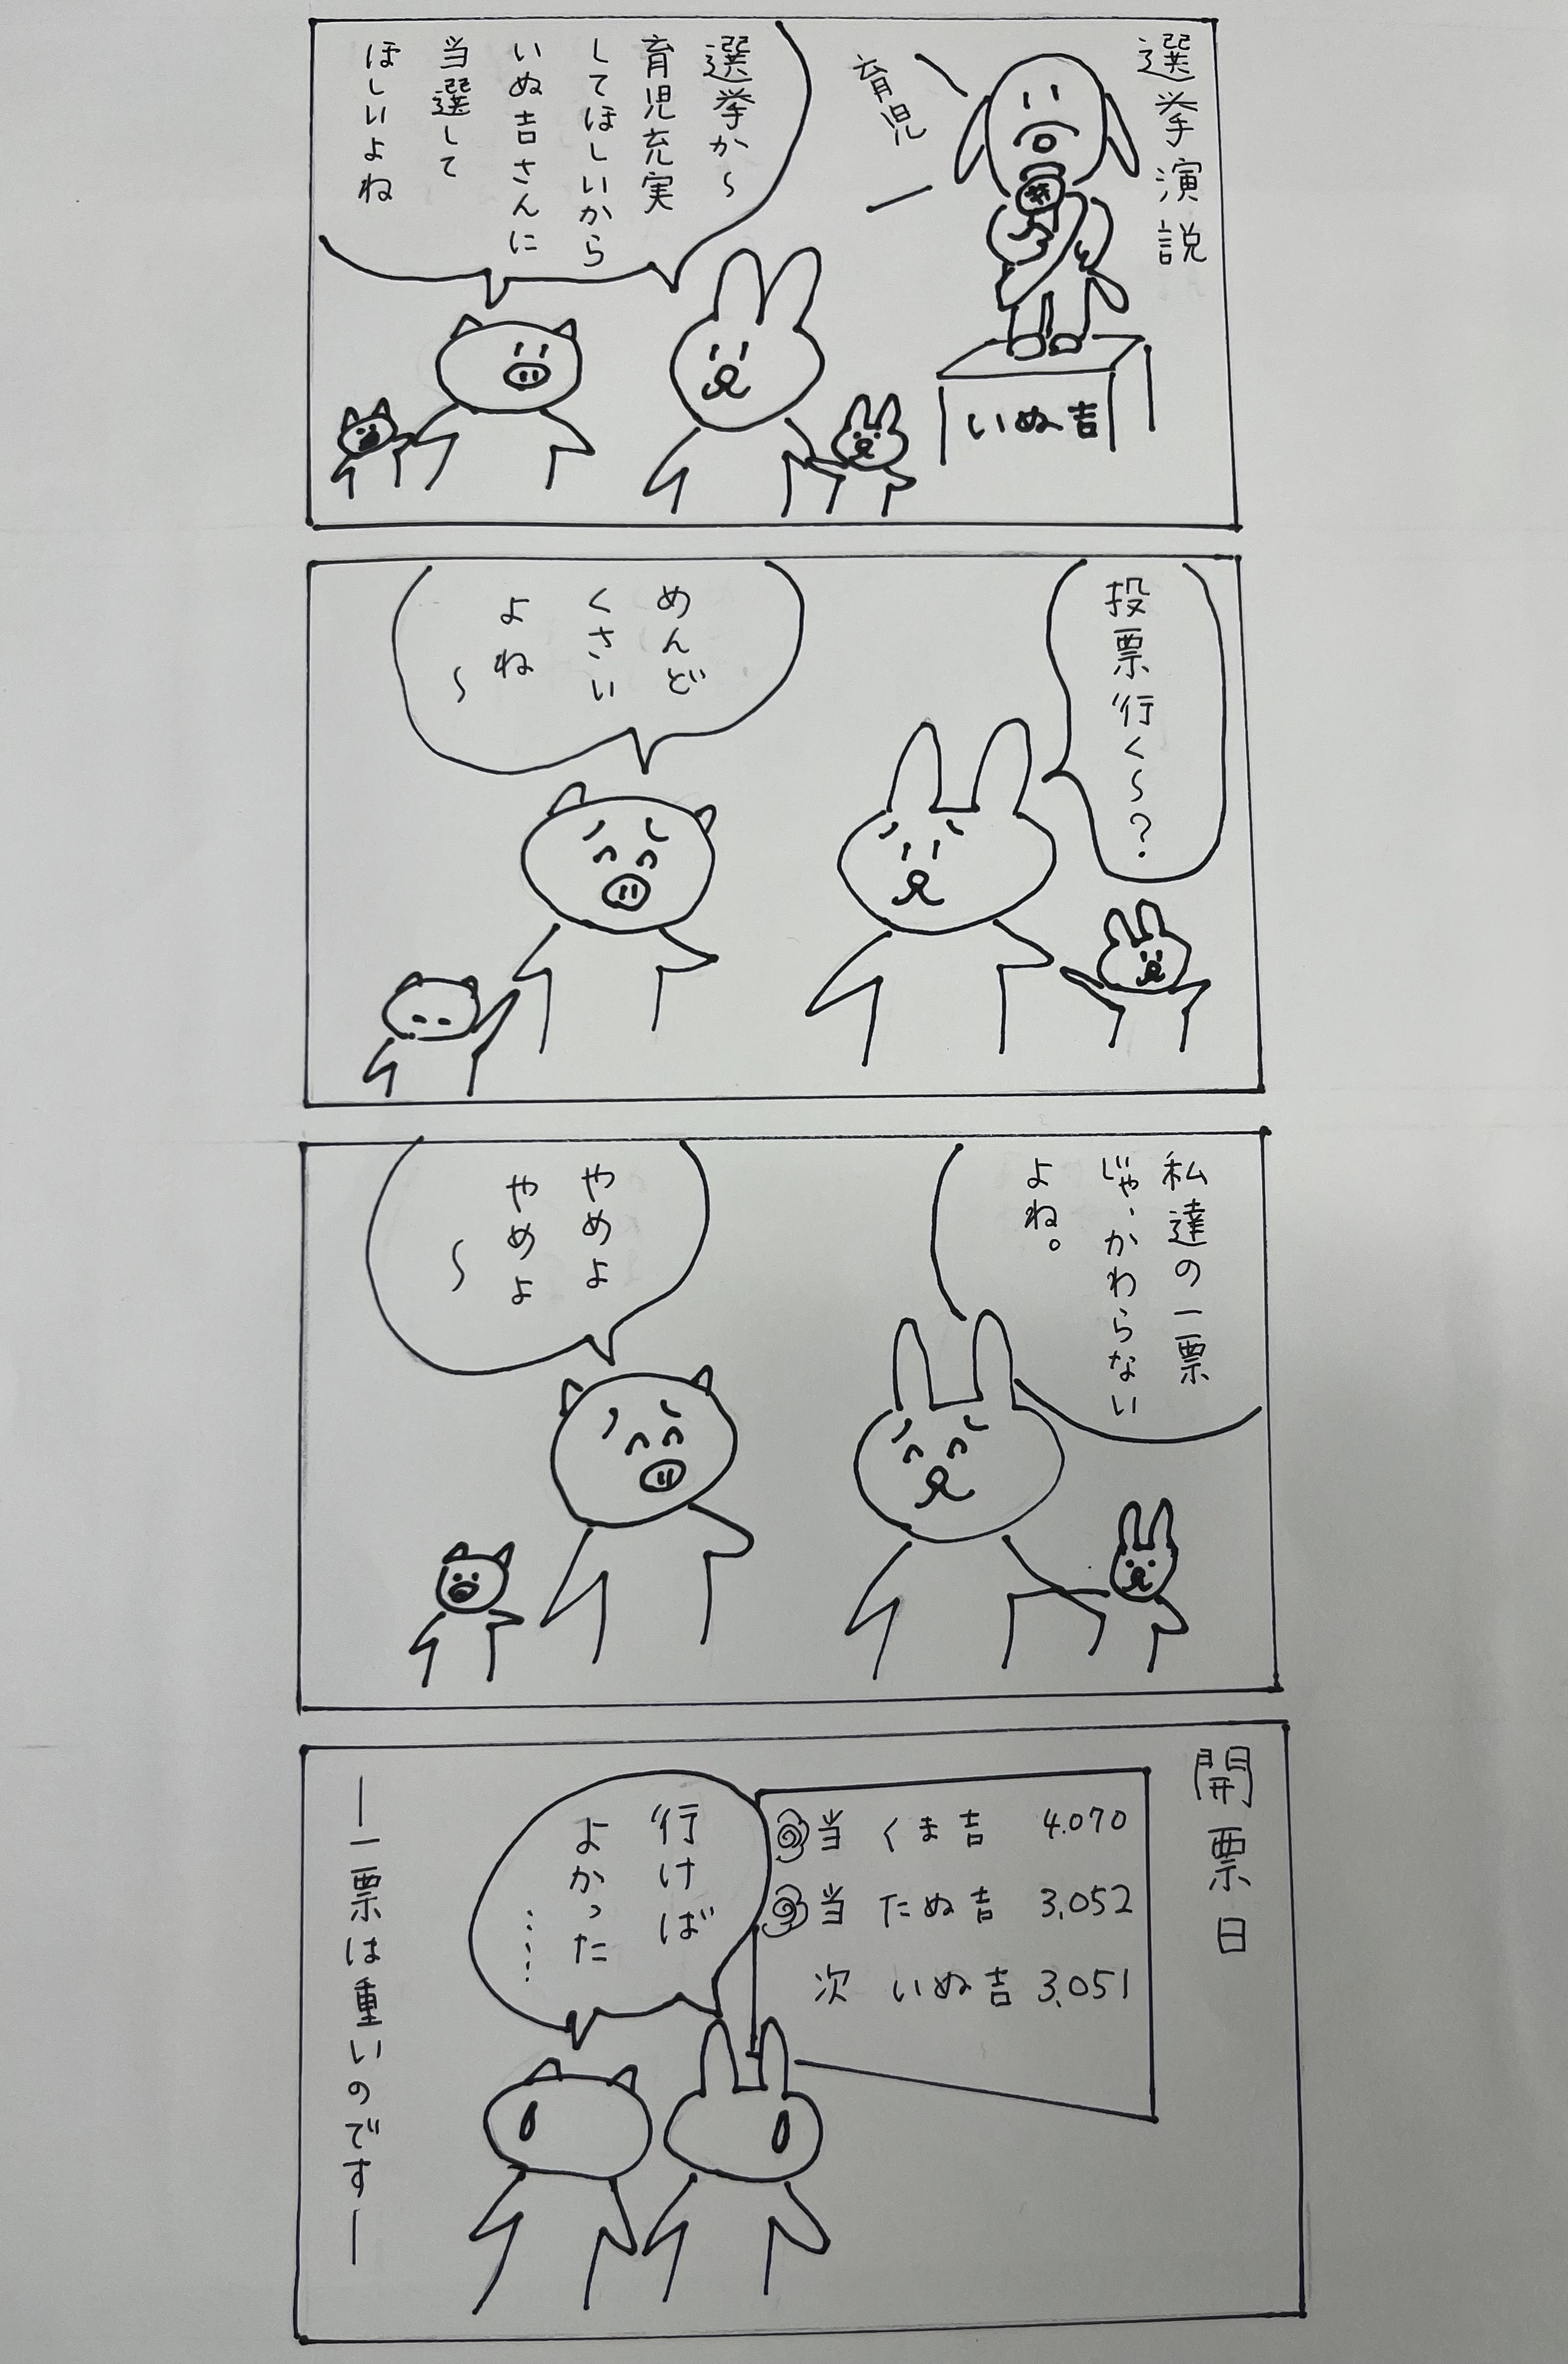 選挙演説
育児
いぬ吉
選挙か〜
育児充実
してほしいから
いぬ吉さんに
当選して
ほしいよね
投票行く〜?
めんど
くさい
よね
〜
私達の一票
じゃ、かわらない
よね。
やめよ
やめよ
〜
開票日
当 くま吉 4.070
当 たぬ吉 3.052
次 いぬ吉 3.051
行けば
よかった
……
―一票は重いのです―